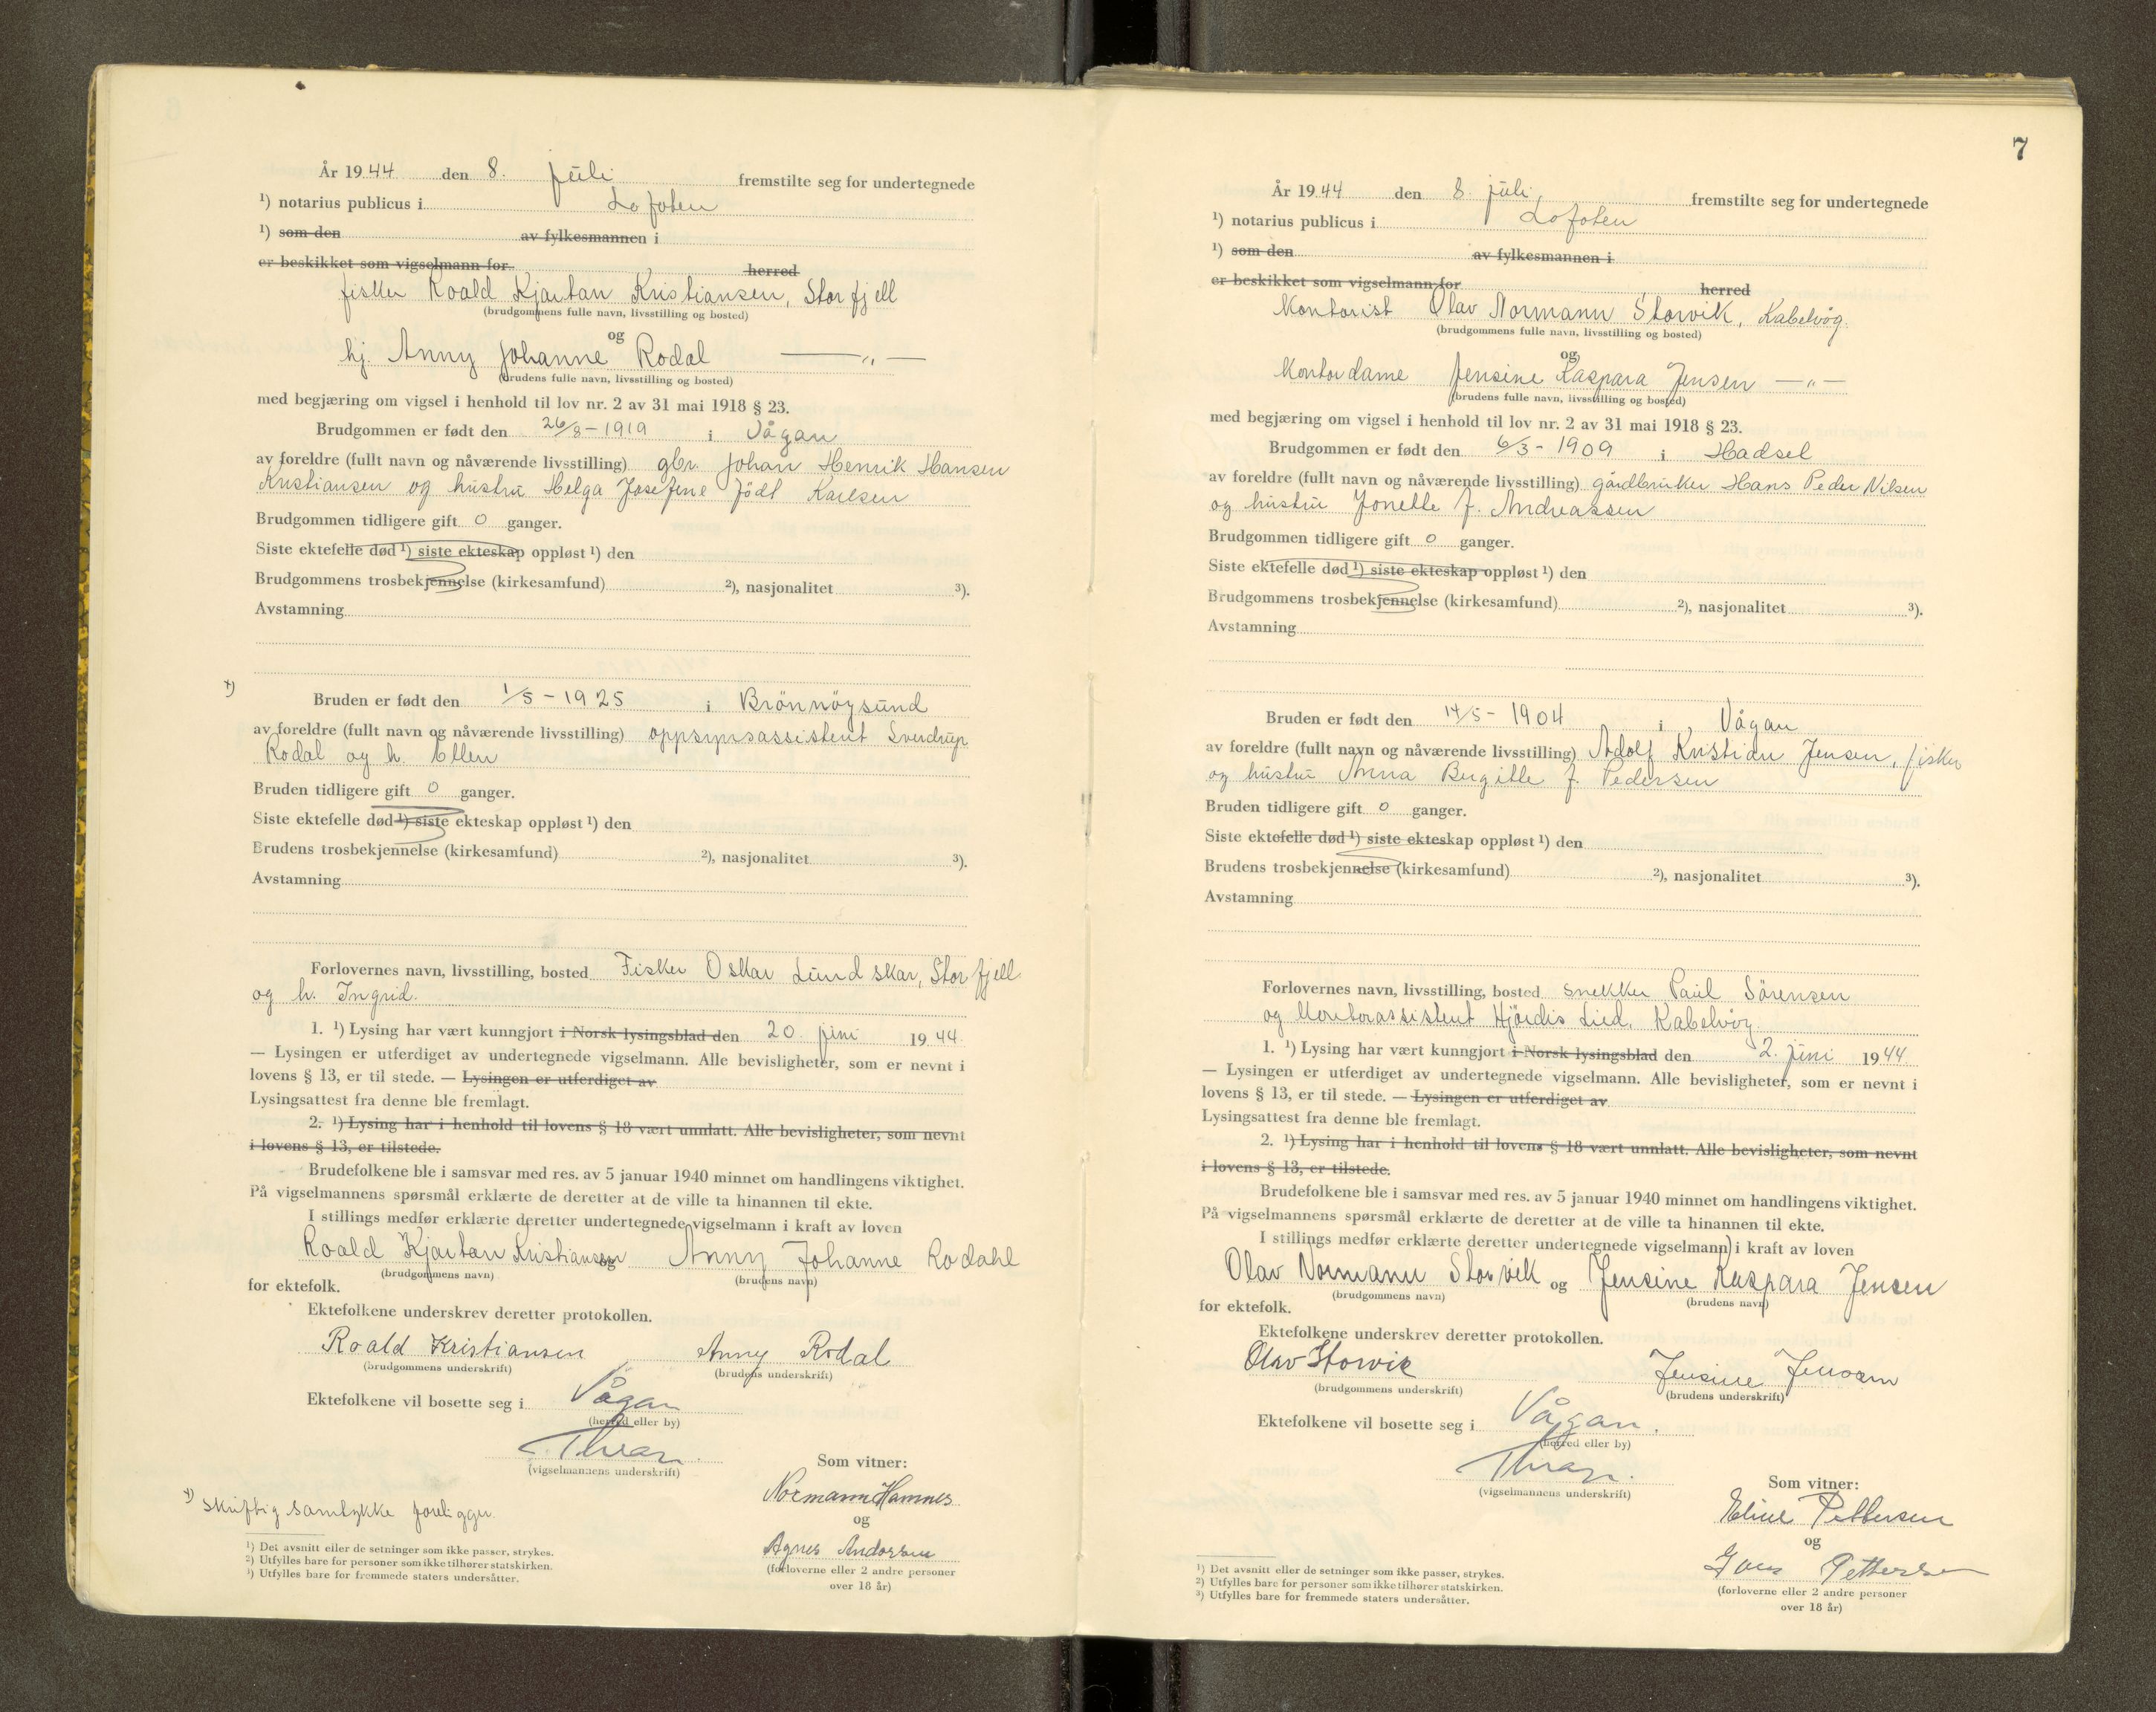 År 1944 den 8. juli fremstilte seg for undertegnede
¹) notarius publicus i Lofoten
¹) som den av fylkesmannen i
er beskikket som vigselmann for herred
fisker Roald Kjartan Kristiansen, Storfjell
(brudgommens fulle navn, livsstilling og bosted)
og
hj. Anny Johanne Rodal —〃—
(brudens fulle navn, livsstilling og bosted)
med begjæring om vigsel i henhold til lov nr. 2 av 31 mai 1918 § 23.
Brudgommen er født den 26/8-1919 i Vågan
av foreldre (fullt navn og nåværende livsstilling) gbr. Johan Henrik Hansen
Kristiansen og hustru Helga Josefine født Karlsen
Brudgommen tidligere gift 0 ganger.
Siste ektefelle død ¹) siste ekteskap oppløst ¹) den
Brudgommens trosbekjennelse (kirkesamfund) ²), nasjonalitet ³).
Avstamning
x) Bruden er født den 1/5-1925 i Brönnöysund
av foreldre (fullt navn og nåværende livsstilling) oppsynsassistent Sverdrup
Rodal og h. Ellen
Bruden tidligere gift 0 ganger.
Siste ektefelle død ¹) siste ekteskap oppløst ¹) den
Brudens trosbekjennelse (kirkesamfund) ²), nasjonalitet ³).
Avstamning
Forlovernes navn, livsstilling, bosted Fisker Oskar Lundskar, Storfjell
og h. Ingrid.
1. ¹) Lysing har vært kunngjort i Norsk lysingsblad den 20. juni 1944
— Lysingen er utferdiget av undertegnede vigselmann. Alle bevisligheter, som er nevnt i
lovens § 13, er til stede. — Lysingen er utferdiget av
Lysingsattest fra denne ble fremlagt.
2. ¹) Lysing har i henhold til lovens § 18 vært unnlatt. Alle bevisligheter, som nevnt
i lovens § 13, er tilstede.
Brudefolkene ble i samsvar med res. av 5 januar 1940 minnet om handlingens viktighet.
På vigselmannens spørsmål erklærte de deretter at de ville ta hinannen til ekte.
I stillings medfør erklærte deretter undertegnede vigselmann i kraft av loven
Roald Kjartan Kristiansen og Anny Johanne Rodahl
(brudgommens navn) (brudens navn)
for ektefolk.
Ektefolkene underskrev deretter protokollen.
Roald Kristiansen Anny Rodal
(brudgommens underskrift) (brudens underskrift)
Ektefolkene vil bosette seg i Vågan
(herred eller by)
(vigselmannens underskrift)
Som vitner:
Normann Hamnes
og
Agnes Andersen
(forloverne eller 2 andre personer
over 18 år)
x) Skriftlig samtykke foreligger.
¹) Det avsnitt eller de setninger som ikke passer, strykes.
²) Utfylles bare for personer som ikke tilhører statskirken.
³) Utfylles bare for fremmede staters undersåtter.
7
År 1944 den 8. juli, fremstilte seg for undertegnede
¹) notarius publicus i Lofoten
¹) som den av fylkesmannen i
er beskikket som vigselmann for herred
Kontorist Olav Normann Storvik, Kabelvåg.
(brudgommens fulle navn, livsstilling og bosted)
og
Kontordame Jensine Kaspara Jensen —〃—
(brudens fulle navn, livsstilling og bosted)
med begjæring om vigsel i henhold til lov nr. 2 av 31 mai 1918 § 23.
Brudgommen er født den 6/3-1909 i Hadsel
av foreldre (fullt navn og nåværende livsstilling) gårdbruker Hans Peder Nilsen
og hustru Jonelle f. Andreassen
Brudgommen tidligere gift 0 ganger.
Siste ektefelle død ¹) siste ekteskap oppløst ¹) den
Brudgommens trosbekjennelse (kirkesamfund) ²), nasjonalitet ³).
Avstamning
Bruden er født den 14/5-1904 i Vågan
av foreldre (fullt navn og nåværende livsstilling) Adolf Kristian Jensen, fisker
og hustru Anna Bergitte f. Pedersen
Bruden tidligere gift 0 ganger.
Siste ektefelle død ¹) siste ekteskap oppløst ¹) den
Brudens trosbekjennelse (kirkesamfund) ²), nasjonalitet ³).
Avstamning
Forlovernes navn, livsstilling, bosted snekker Paul Sörensen
og kontorassistent Hjördis Lied, Kabelvåg
1. ¹) Lysing har vært kunngjort i Norsk lysingsblad den 2. juni 1944
— Lysingen er utferdiget av undertegnede vigselmann. Alle bevisligheter, som er nevnt i
lovens § 13, er til stede. — Lysingen er utferdiget av
Lysingsattest fra denne ble fremlagt.
2. ¹) Lysing har i henhold til lovens § 18 vært unnlatt. Alle bevisligheter, som nevnt
i lovens § 13, er tilstede.
Brudefolkene ble i samsvar med res. av 5 januar 1940 minnet om handlingens viktighet.
På vigselmannens spørsmål erklærte de deretter at de ville ta hinannen til ekte.
I stillings medfør erklærte deretter undertegnede vigselmann i kraft av loven
Olav Normann Storvik og Jensine Kaspara Jensen
(brudgommens navn) (brudens navn)
for ektefolk.
Ektefolkene underskrev deretter protokollen.
Olav Storvik Jensine Jensen
(brudgommens underskrift) (brudens underskrift)
Ektefolkene vil bosette seg i Vågan.
(herred eller by)
(vigselmannens underskrift)
Som vitner:
Eline Pettersen
og
Pettersen
(forloverne eller 2 andre personer
over 18 år)
¹) Det avsnitt eller de setninger som ikke passer, strykes.
²) Utfylles bare for personer som ikke tilhører statskirken.
³) Utfylles bare for fremmede staters undersåtter.